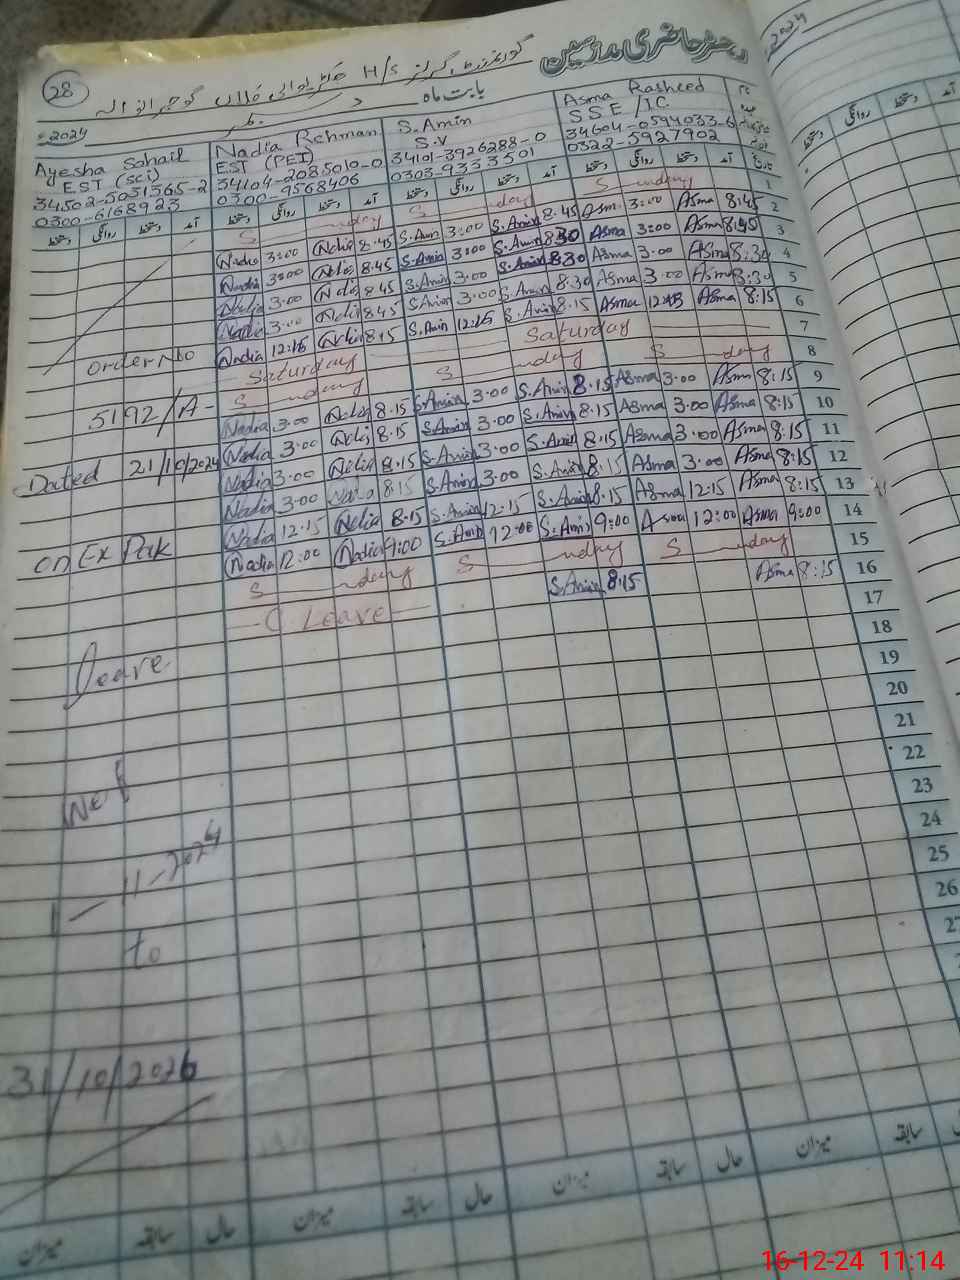 رجسٹر حاضری مدرسین
28
گورنمنٹ گرلز H/S
گوجرانوالہ
بابت ماہ دسمبر
2024
Ayesha Sohail
EST (Sci)
34502-5031565-2
0300-6168923
Nadia Rehman
EST (PET)
34104-2085010-0
0300-9568406
S.Amin
S.V
34101-3926288-0
0303-9333501
Asma Rasheed
SSE/I.C
34604-0594033-6
0322-5927902
دستخط روانگی دستخط آمد دستخط روانگی دستخط آمد دستخط روانگی دستخط آمد دستخط روانگی دستخط آمد تاریخ
S unday S unday S unday 1
Nadia 3:00 Nadia 8.45 S.Amin 3:00 S.Amin 8.45 Asma 3:00 Asma 8:45 2
Nadia 3:00 Nadia 8.45 S.Amin 3:00 S.Amin 8.30 Asma 3:00 Asma 8:45 3
Nadia 3.00 Nadia 8.45 S.Amin 3.00 S.Amin 8.30 Asma 3.00 Asma 8:30 4
Nadia 3:00 Nadia 8.45 S.Amin 3.00 S.Amin 8.30 Asma 3.00 Asma 8:30 5
Nadia 12:15 Nadia 8:15 S.Amin 12:15 S.Amin 8.15 Asma 12:15 Asma 8:15 6
Order No Saturday Saturday 7
S unday S unday S unday 8
5192/A- Nadia 3.00 Nadia 8.15 S.Amin 3.00 S.Amin 8.15 Asma 3.00 Asma 8:15 9
Nadia 3.00 Nadia 8.15 S.Amin 3.00 S.Amin 8.15 Asma 3.00 Asma 8:15 10
Dated 21/10/2024 Nadia 3.00 Nadia 8.15 S.Amin 3.00 S.Amin 8.15 Asma 3.00 Asma 8:15 11
Nadia 3.00 Nadia 8.15 S.Amin 3.00 S.Amin 8.15 Asma 3.00 Asma 8:15 12
Nadia 12.15 Nadia 8.15 S.Amin 12.15 S.Amin 8.15 Asma 12.15 Asma 8:15 13
on Ex Pak Nadia 12:00 Nadia 9:00 S.Amin 12:00 S.Amin 9:00 Asma 12:00 Asma 9:00 14
S unday S unday S unday 15
C Leave S.Amin 8.15 Asma 8:15 16
17
leave 18
19
20
21
Wef 22
23
1-11-2024 24
25
to 26
27
31/10/2026
میزان سابقہ حال میزان سابقہ حال میزان سابقہ حال میزان سابقہ
2024
دستخط روانگی دستخط آمد
16-12-24 11:14